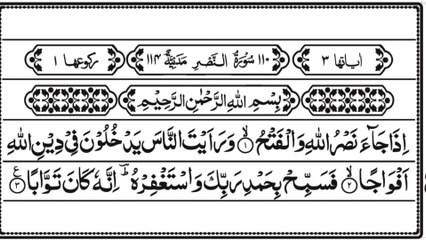 اٰیاتها ٣ ١١٠ سُوْرَةُ النَّصْرِ مَدَنِیَّةٌ ١١٤ رکوعها ١
بِسْمِ اللهِ الرَّحْمٰنِ الرَّحِیْمِ
اِذَا جَآءَ نَصْرُ اللهِ وَالْفَتْحُ ۙ﴿١﴾ وَ رَاَیْتَ النَّاسَ یَدْخُلُوْنَ فِیْ دِیْنِ اللهِ
اَفْوَاجًا ۙ﴿٢﴾ فَسَبِّحْ بِحَمْدِ رَبِّكَ وَ اسْتَغْفِرْهُ ؔؕ اِنَّهٗ كَانَ تَوَّابًا ﴿٣﴾ ع